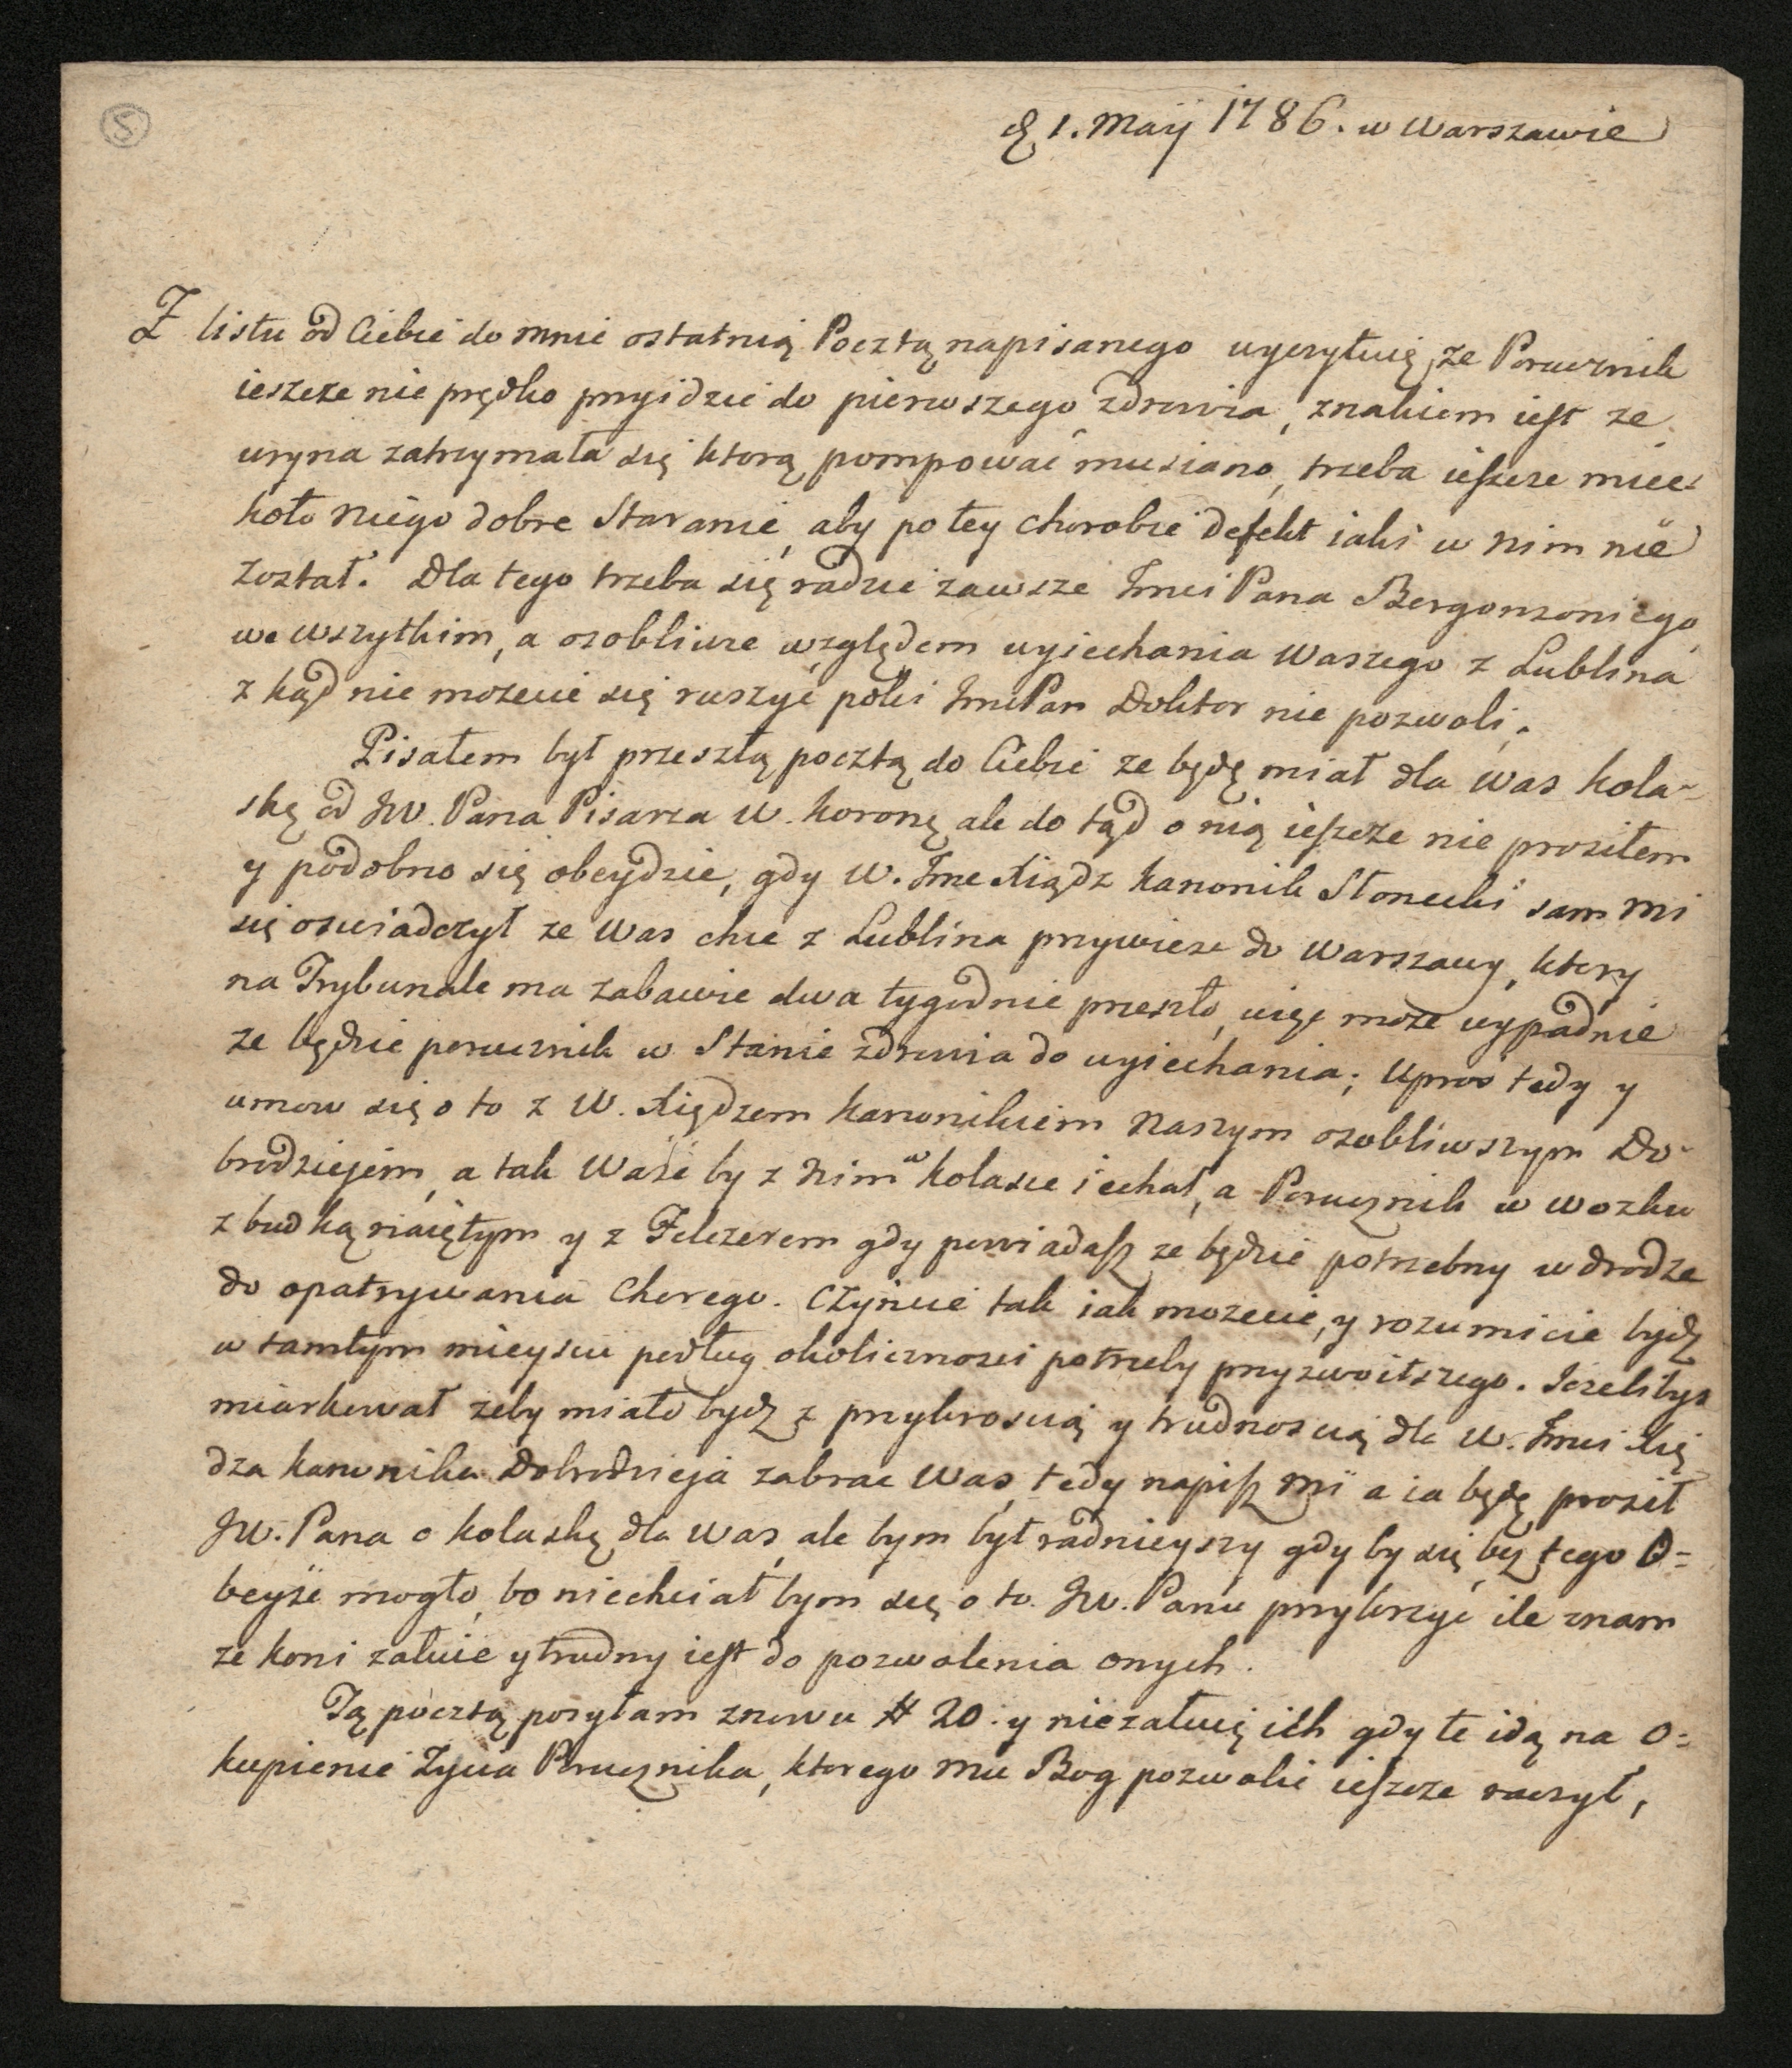 5
d 1. Maÿ 1786. w Warszawie
Z listu od Ciebie do mnie ostatnią Pocztą napisanego wyczytuię, ze Porucznik
ieszcze nie prędko przyidzie do pierwszego zdrowia, znakiem iest ze
uryna zatrzymała się ktorą pompować musiano, trzeba ieszcze miec
koło niego dobre Staranie, aby po tey chorobie defekt iaki w nim nie
został. Dla tego trzeba się radzic zawsze Jmci Pana Bergonzoniego
we wszytkim, a osobliwie względem wyiechania Waszego z Lublina
z kąd nie mozecie się ruszyć poki JmcPan Doktor nie pozwoli.
Pisałem był przeszłą pocztą do Ciebie ze będę miał dla Was kola-
skę od JW. Pana Pisarza W. Koronę, ale do tąd o nią ieszcze nie prosiłem
y podobno się obeydzie, gdy W. Jmc Xiądz Kanonik Słonecki sam mi
się oswiadczył ze Was chce z Lublina przywiesc do Warszawy, ktory
na Trybunale ma zabawic dwa tygodnie przeszło, więc moze wypadnie
ze będzie porucznik w Stanie zdrowia do wyiechania; Upros tedy y
umow się o to z W. Xiędzem Kanonikiem Naszym osobliwszym Do-
brodziejem, a tak Wasc by z Nim w kolasce iechał, a Porucznik w wozku
z budką naiętym y z Felczerem gdy powiadasz ze będzie potrzebny w drodze
do opatrywania Chorego. Czyncie tak iak mozecie, y rozumicie bydz
w tamtym mieyscu podług okolicznosci potrzeby przyzwoitszego. Jezelibys
miarkował zeby miało bydz z przykroscią y trudnoscią dla W. Jmci Xię
dza Kanonika Dobrodzieja zabrac Was, tedy napisz mi a ia będę prosił
JW. Pana o kolaskę dla Was, ale bym był radnieyszy gdy by się bez tego O=
beyść mogło, bo niechciał bym się o to JW. Panu przykrzyć ile znam
ze koni załuie y trudny iest do pozwolenia onych.
Tą pocztą posyłam znowu # 20. y niezałuię ich gdy te idą na O=
kupienie Zycia Porucznika, ktorego mu Bog pozwolic ieszcze raczył,